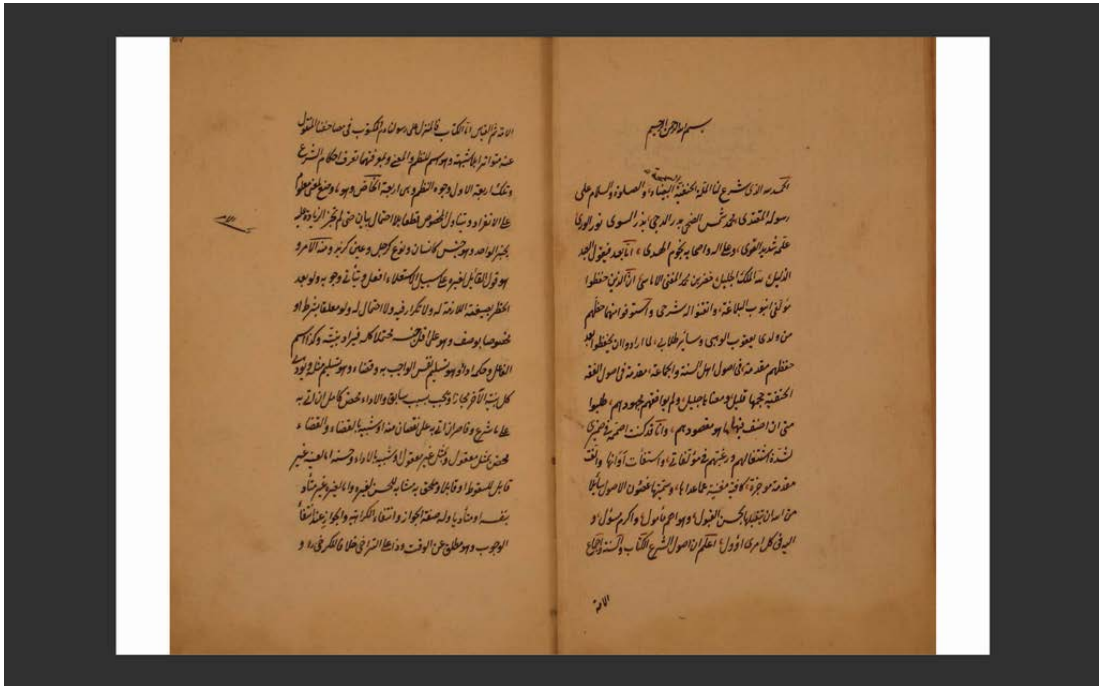 بسم الله الرحمن الرحيم
الحمد لله الذى شرع لنا الملة الحنفية البيضاء والصلوة والسلام على
رسوله المقتدى محمد شمس الضحى بدر الدجى نور الورى
علمه شديد القوى وعلى اله واصحابه نجوم الهدى اما بعد فيقول العبد
الذليل لله الملك الجليل خضر بن محمد المفتى الاماسى ان الذين حفظوا
مؤلفى انبوب البلاغة واتقنوا له شرحى واستوفوا منهما حظهم
من ولدى يعقوب الوهبى وسائر طلابى لما ارادوا ان يحفظوا بعد
حفظهم مقدمة فى اصول اهل السنة والجماعة مقدمة فى اصول الفقه
الحنفية حجمها قليل ومعناها جليل ولم يوافقهم جهودهم طلبوا
منى ان اصنف فيها ما هو مقصودهم وانا قد كنت اضمره فى ضميرى
لشدة اشتغالهم ورغبتهم فى مؤلفاتى والفت
مقدمة موجزة كافية مغنية عما عداها وسميتها غصون الاصول سائلا
من الله ان يتقبلها بحسن القبول وهو اهم مأمول واكرم مسؤل و
اليه فى كل امرى اؤول اعلم ان اصول الشرع الكتاب والسنة واجماع
الامة
الامة ثم القياس اما الكتاب فالمنزل على رسولنا المكتوب فى مصاحفنا المنقول
عنه متواترا بلا شبهة وهو اسم للنظم والمعنى وبمعرفتهما تعرف احكام الشرع
وتلك اربعة الاول وجوه النظم وهى اربعة الخاص وهو ما وضع لمعنى معلوم
على الانفراد ويتناول المخصوص قطعا بلا احتمال بيان حتى لم يجز الزيادة عليه
بخبر الواحد وهو جنس كانسان ونوع كرجل وعين كزيد ومنه الامر و
هو قول القائل لغيره على سبيل الاستعلاء افعل ويثبت وجوبه ولو بعد
الحظر بصيغته اللازمة له ولا تكرار فيه ولا احتمال له ولو معلقا بشرط او
مخصوصا بوصف وهو على اقل جنسه محتملا كله فيراد بنيته وكذا اسم
الفاعل وحكمه اداء وهو تسليم نفس الواجب به وقضاء وهو تسليم مثله ويؤدى
كل بنية الآخر مجازا ويجب بسبب سابق والاداء محض كامل ان اتى به
على ما شرع وقاصر ان اتى به على نقصان منه او شبيه بالقضاء والقضاء
محض بمثل معقول وبمثل غير معقول او شبيه بالاداء وحسنه اما لعينه غير
قابل للسقوط او قابلا وملحق به مشابه للحسن لغيره واما لغيره غير متأد
بنفسه او متأديا وله صفة الجواز وانتفاء الكراهية والجواز ينتفى عند انتفاء
الوجوب وهو مطلق عن الوقت وذا على التراخى خلافا للكرخى و